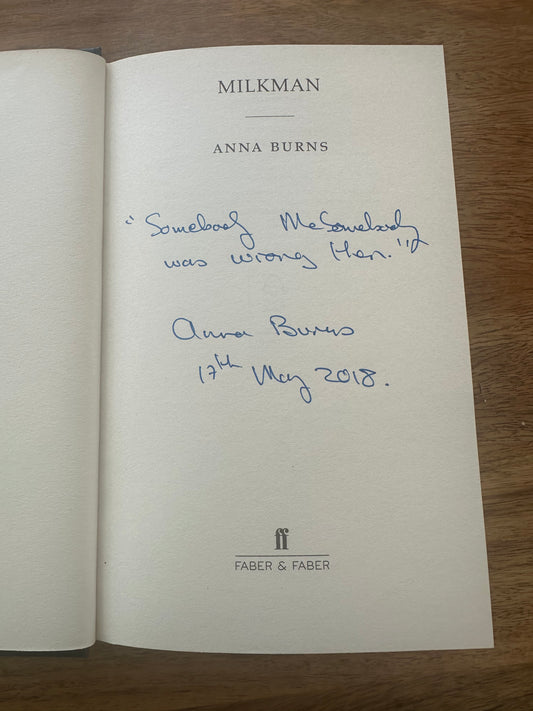 MILKMAN
ANNA BURNS
"Somebody McSomebody
was wrong then."
Anna Burns
17th May 2018.
ff
FABER & FABER